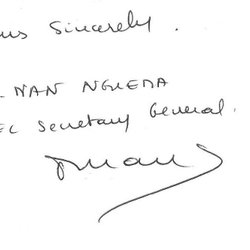 us Sincerely.
. NAN NGUEMA
EC Secretary General.